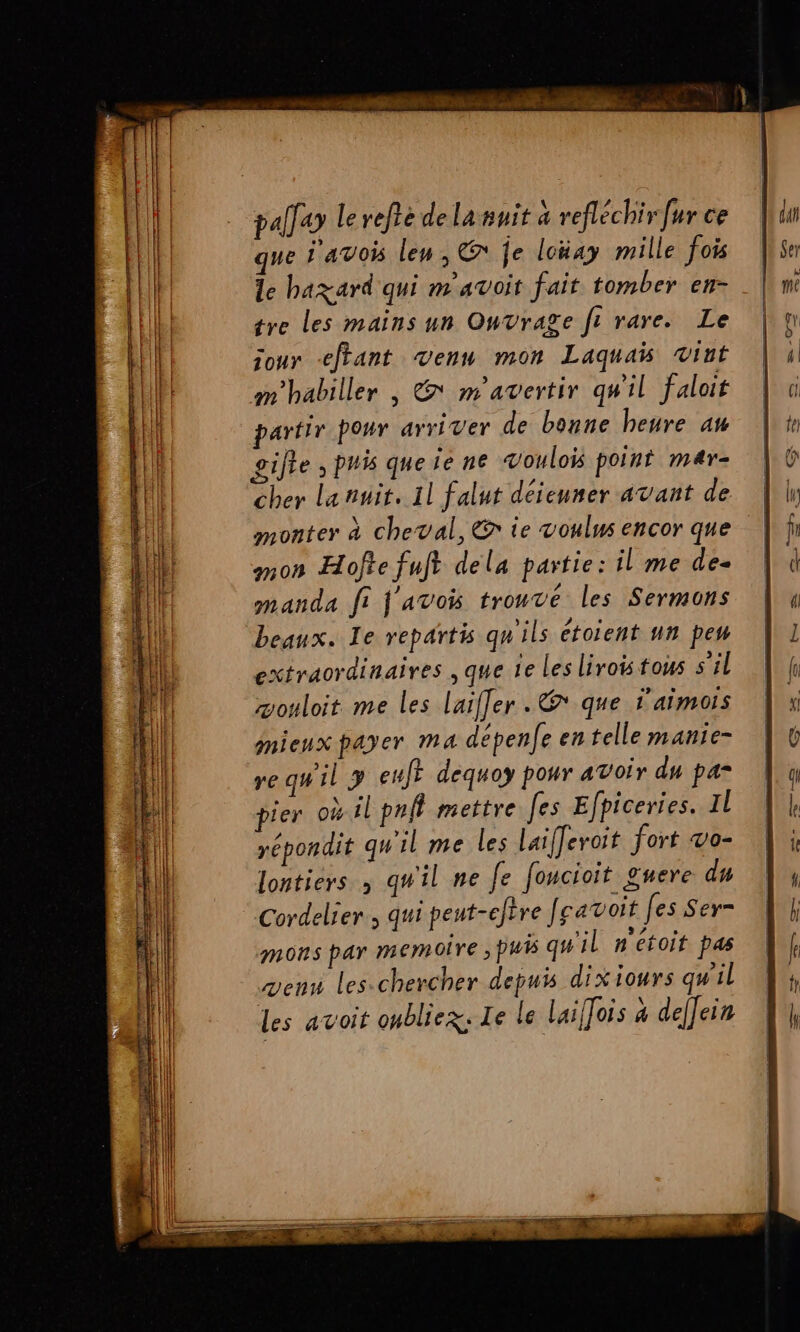 paſſay le reſte de la nuit à refléchir ſur ce
que i'avois leu, & je loüay mille fois
le hazard qui m'avoit fait tomber en-
tre les mains un Ouvrage ſi rare. Le
iour eſtant venu mon Laquais vint
m'habiller, & m'avertir qu'il faloit
partir pour arriver de bonne heure au
giſte, puis que ie ne voulois point mar-
cher la nuit. Il falut déieuner avant de
monter à cheval, & ie voulus encor que
mon Hoſte fuſt de la partie: il me de-
manda ſi j'avois trouvé les Sermons
beaux. Ie repartis qu'ils étoient un peu
extraordinaires, que ie les lirois tous s'il
vouloit me les laiſſer. & que i'aimois
mieux payer ma dépenſe en telle manie-
re qu'il y euſt dequoy pour avoir du pa-
pier où il puſt mettre ſes Eſpiceries. Il
répondit qu'il me les laiſſeroit fort vo-
lontiers, qu'il ne ſe ſoucioit guere du
Cordelier, qui peut-eſtre ſçavoit ſes Ser-
mons par memoire, puis qu'il n'étoit pas
venu les chercher depuis dix iours qu'il
les avoit oubliez. Ie le laiſſois à deſſein